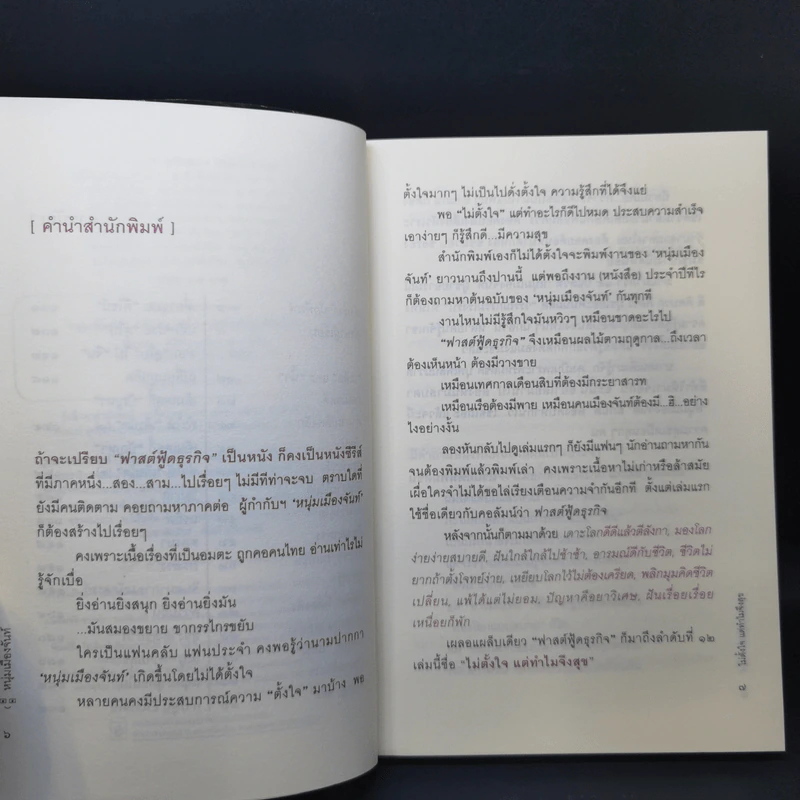 [ คำนำสำนักพิมพ์ ]
ถ้าจะเปรียบ "ฟาสต์ฟู้ดธุรกิจ" เป็นหนัง ก็คงเป็นหนังซีรีส์
ที่มีภาคหนึ่ง...สอง...สาม...ไปเรื่อยๆ ไม่มีทีท่าจะจบ ตราบใดที่
ยังมีคนติดตาม คอยถามหาภาคต่อ ผู้กำกับฯ 'หนุ่มเมืองจันท์'
ก็ต้องสร้างไปเรื่อยๆ
คงเพราะเนื้อเรื่องที่เป็นอมตะ ถูกคอคนไทย อ่านเท่าไรไม่
รู้จักเบื่อ
ยิ่งอ่านยิ่งสนุก ยิ่งอ่านยิ่งมัน
...มันสมองขยาย ขากรรไกรขยับ
ใครเป็นแฟนคลับ แฟนประจำ คงพอรู้ว่านามปากกา
'หนุ่มเมืองจันท์' เกิดขึ้นโดยไม่ได้ตั้งใจ
หลายคนคงมีประสบการณ์ความ "ตั้งใจ" มาบ้าง พอ
หนุ่มเมืองจันท์
๖
ตั้งใจมากๆ ไม่เป็นไปดั่งตั้งใจ ความรู้สึกที่ได้จึงแย่
พอ "ไม่ตั้งใจ" แต่ทำอะไรก็ดีไปหมด ประสบความสำเร็จ
เอาง่ายๆ ก็รู้สึกดี...มีความสุข
สำนักพิมพ์เองก็ไม่ได้ตั้งใจจะพิมพ์งานของ 'หนุ่มเมือง
จันท์' ยาวนานถึงปานนี้ แต่พอถึงงาน (หนังสือ) ประจำปีทีไร
ก็ต้องถามหาต้นฉบับของ 'หนุ่มเมืองจันท์' กันทุกที
งานไหนไม่มีรู้สึกใจมันหวิวๆ เหมือนขาดอะไรไป
"ฟาสต์ฟู้ดธุรกิจ" จึงเหมือนผลไม้ตามฤดูกาล...ถึงเวลา
ต้องเห็นหน้า ต้องมีวางขาย
เหมือนเทศกาลเดือนสิบที่ต้องมีกระยาสารท
เหมือนเรือต้องมีพาย เหมือนคนเมืองจันท์ต้องมี...ฮิ...อย่าง
ไงอย่างงั้น
ลองหันกลับไปดูเล่มแรกๆ ก็ยังมีแฟนๆ นักอ่านถามหากัน
จนต้องพิมพ์แล้วพิมพ์เล่า คงเพราะเนื้อหาไม่เก่าหรือล้าสมัย
เผื่อใครจำไม่ได้ขอไล่เรียงเตือนความจำกันอีกที ตั้งแต่เล่มแรก
ใช้ชื่อเดียวกับคอลัมน์ว่า ฟาสต์ฟู้ดธุรกิจ
หลังจากนั้นก็ตามมาด้วย เตาะโลกดีดีแล้วตีลังกา, มองโลก
ง่ายง่ายสบายดี, ฝันใกล้ใกล้ไปช้าช้า, อารมณ์ดีกับชีวิต, ชีวิตไม่
ยากถ้าตั้งโจทย์ง่าย, เหยียบโลกไว้ไม่ต้องเครียด, พลิกมุมคิดชีวิต
เปลี่ยน, แพ้ได้แต่ไม่ยอม, ปัญหาคือยาวิเศษ, ฝันเรื่อยเรื่อย
เหนื่อยก็พัก
เผลอแผล็บเดียว "ฟาสต์ฟู้ดธุรกิจ" ก็มาถึงลำดับที่ ๑๒
เล่มนี้ชื่อ "ไม่ตั้งใจ แต่ทำไมจึงสุข"
ไม่ตั้งใจ แต่ทำไมจึงสุข